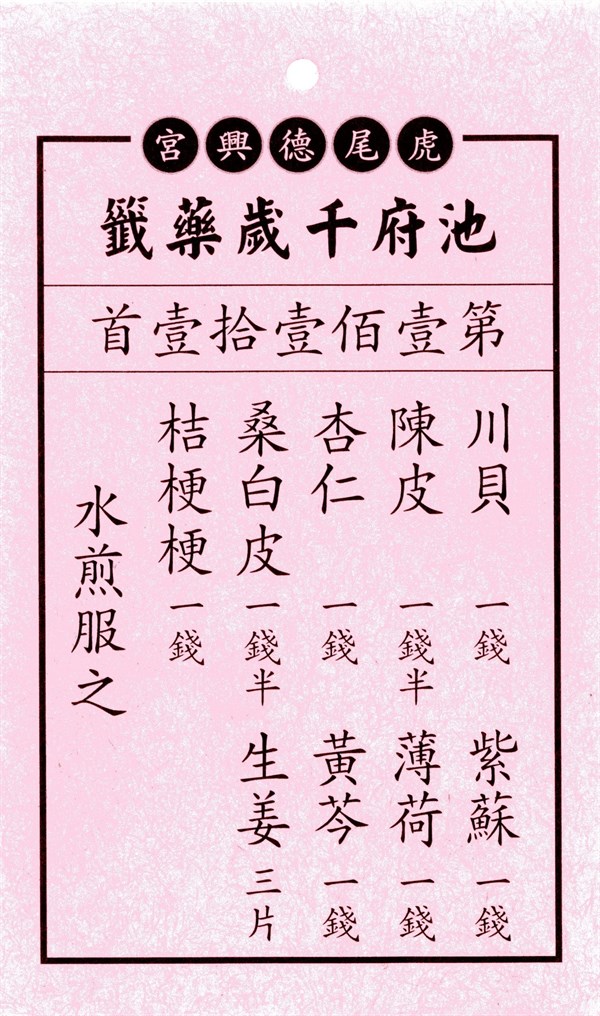 虎尾德興宮
池府千歲藥籤
第壹佰壹拾壹首
川貝 一錢 紫蘇 一錢
陳皮 一錢半 薄荷 一錢
杏仁 一錢 黃芩 一錢
桑白皮 一錢半 生姜 三片
桔梗梗 一錢
水煎服之